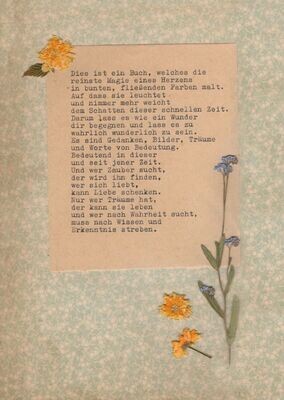 Dies ist ein Buch, welches die
reinste Magie eines Herzens
in bunten, fließenden Farben malt.
Auf dass sie leuchtet
und nimmer mehr weicht
dem Schatten dieser schnellen Zeit.
Darum lass es wie ein Wunder
dir begegnen und lass es zu
wahrlich wunderlich zu sein.
Es sind Gedanken, Bilder, Träume
und Worte von Bedeutung.
Bedeutend in dieser
und seit jener Zeit.
Und wer Zauber sucht,
der wird ihn finden,
wer sich liebt,
kann Liebe schenken.
Nur wer Träume hat,
der kann sie leben
und wer nach Wahrheit sucht,
muss nach Wissen und
Erkenntnis streben.